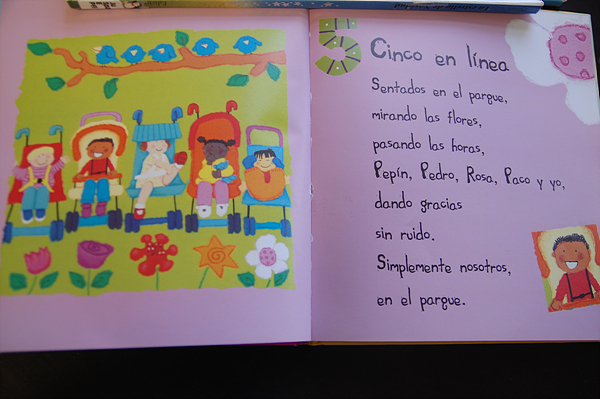 5
Cinco en línea
Sentados en el parque,
mirando las flores,
pasando las horas,
Pepín, Pedro, Rosa, Paco y yo,
dando gracias
sin ruido.
Simplemente nosotros,
en el parque.